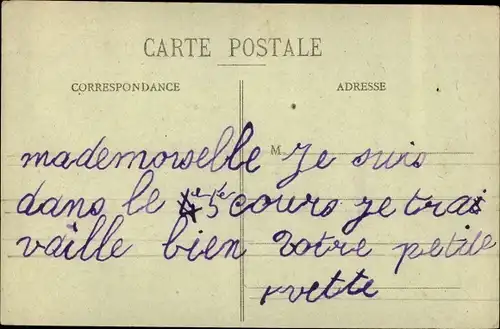 CARTE POSTALE
CORRESPONDANCE
ADRESSE
M
mademoiselle Je suis
dans le 5e cours je trai
vaille bien Votre petite
yvette